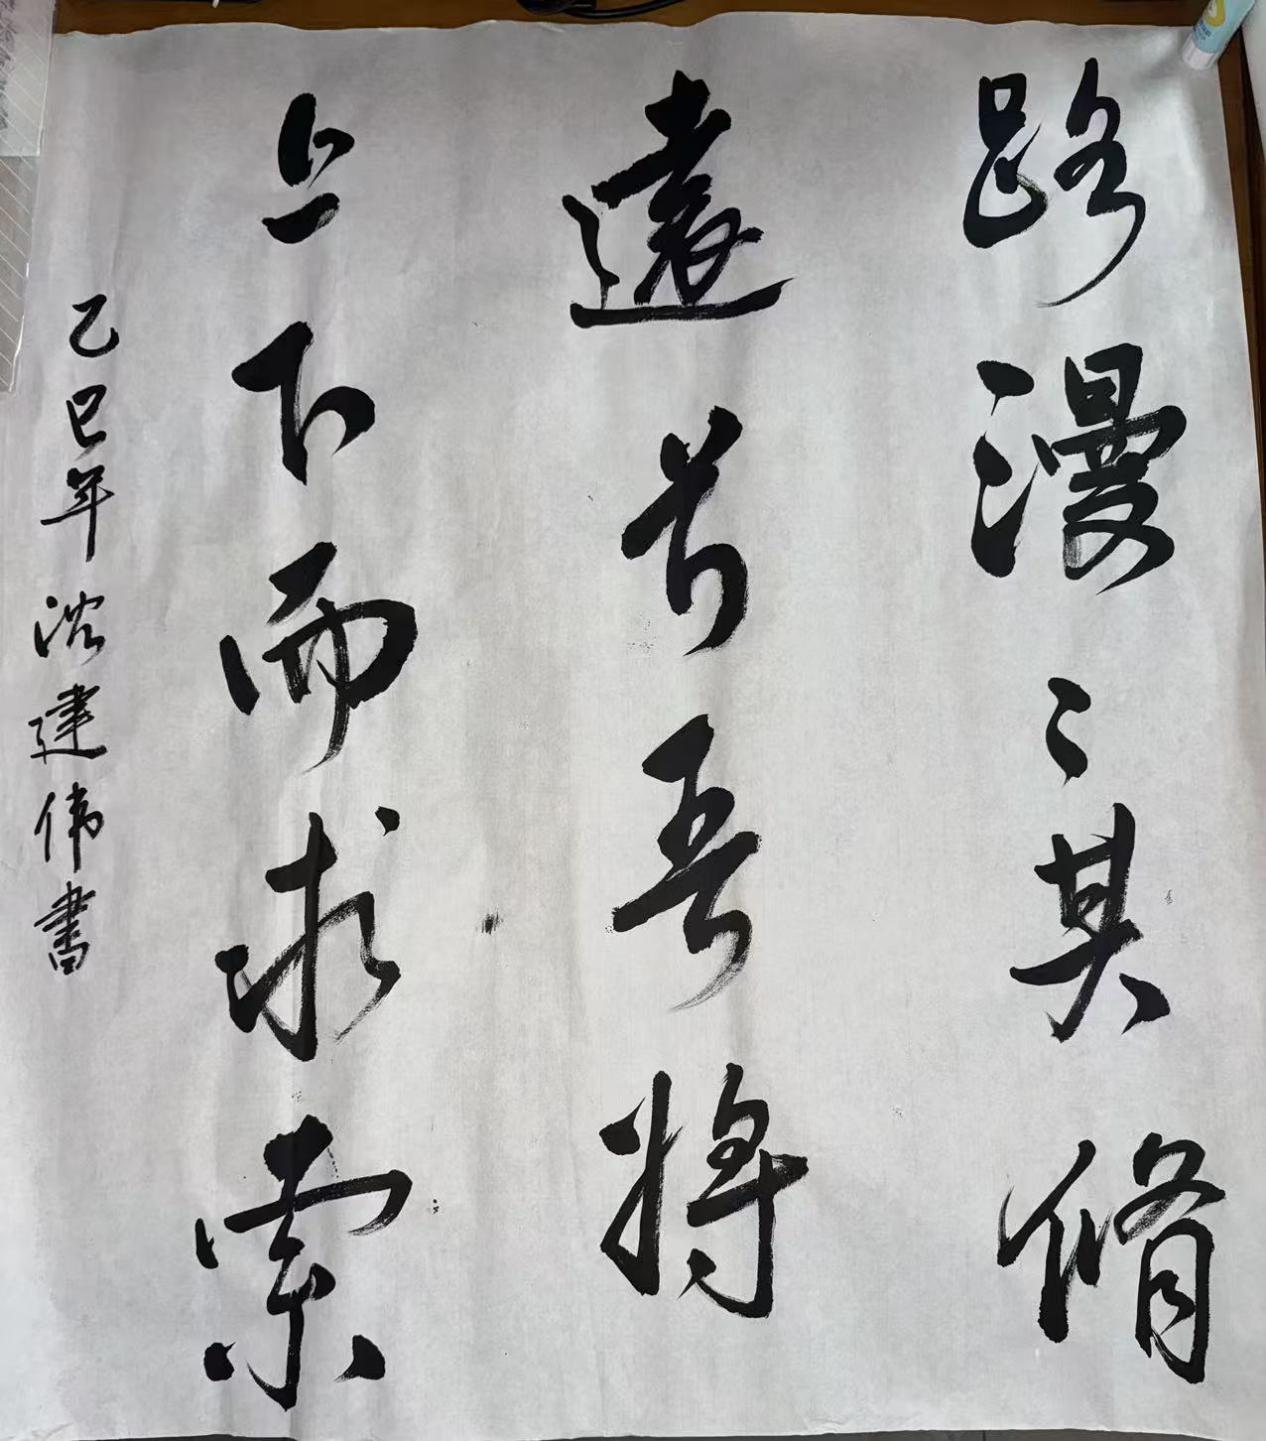 路漫〻其脩
遠兮吾將
上下而求索
乙巳年沈建伟書